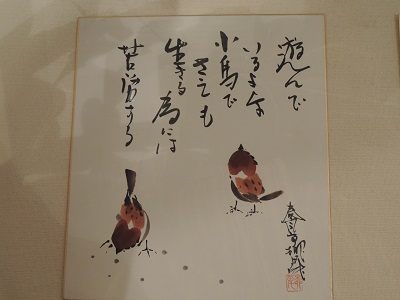 遊んで
いるような
小鳥で
さえも
生きる為には
苦労する